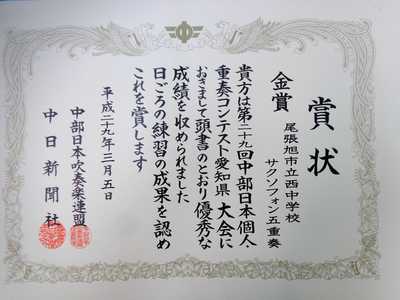 賞状
尾張旭市立西中学校
サクソフォン五重奏
金賞
貴方は第二十九回中部日本個人
重奏コンテスト愛知県大会に
おきまして頭書のとおり優秀な
成績を収められました
日ごろの練習の成果を認め
これを賞します
平成二十九年三月五日
中部日本吹奏楽連盟
中日新聞社